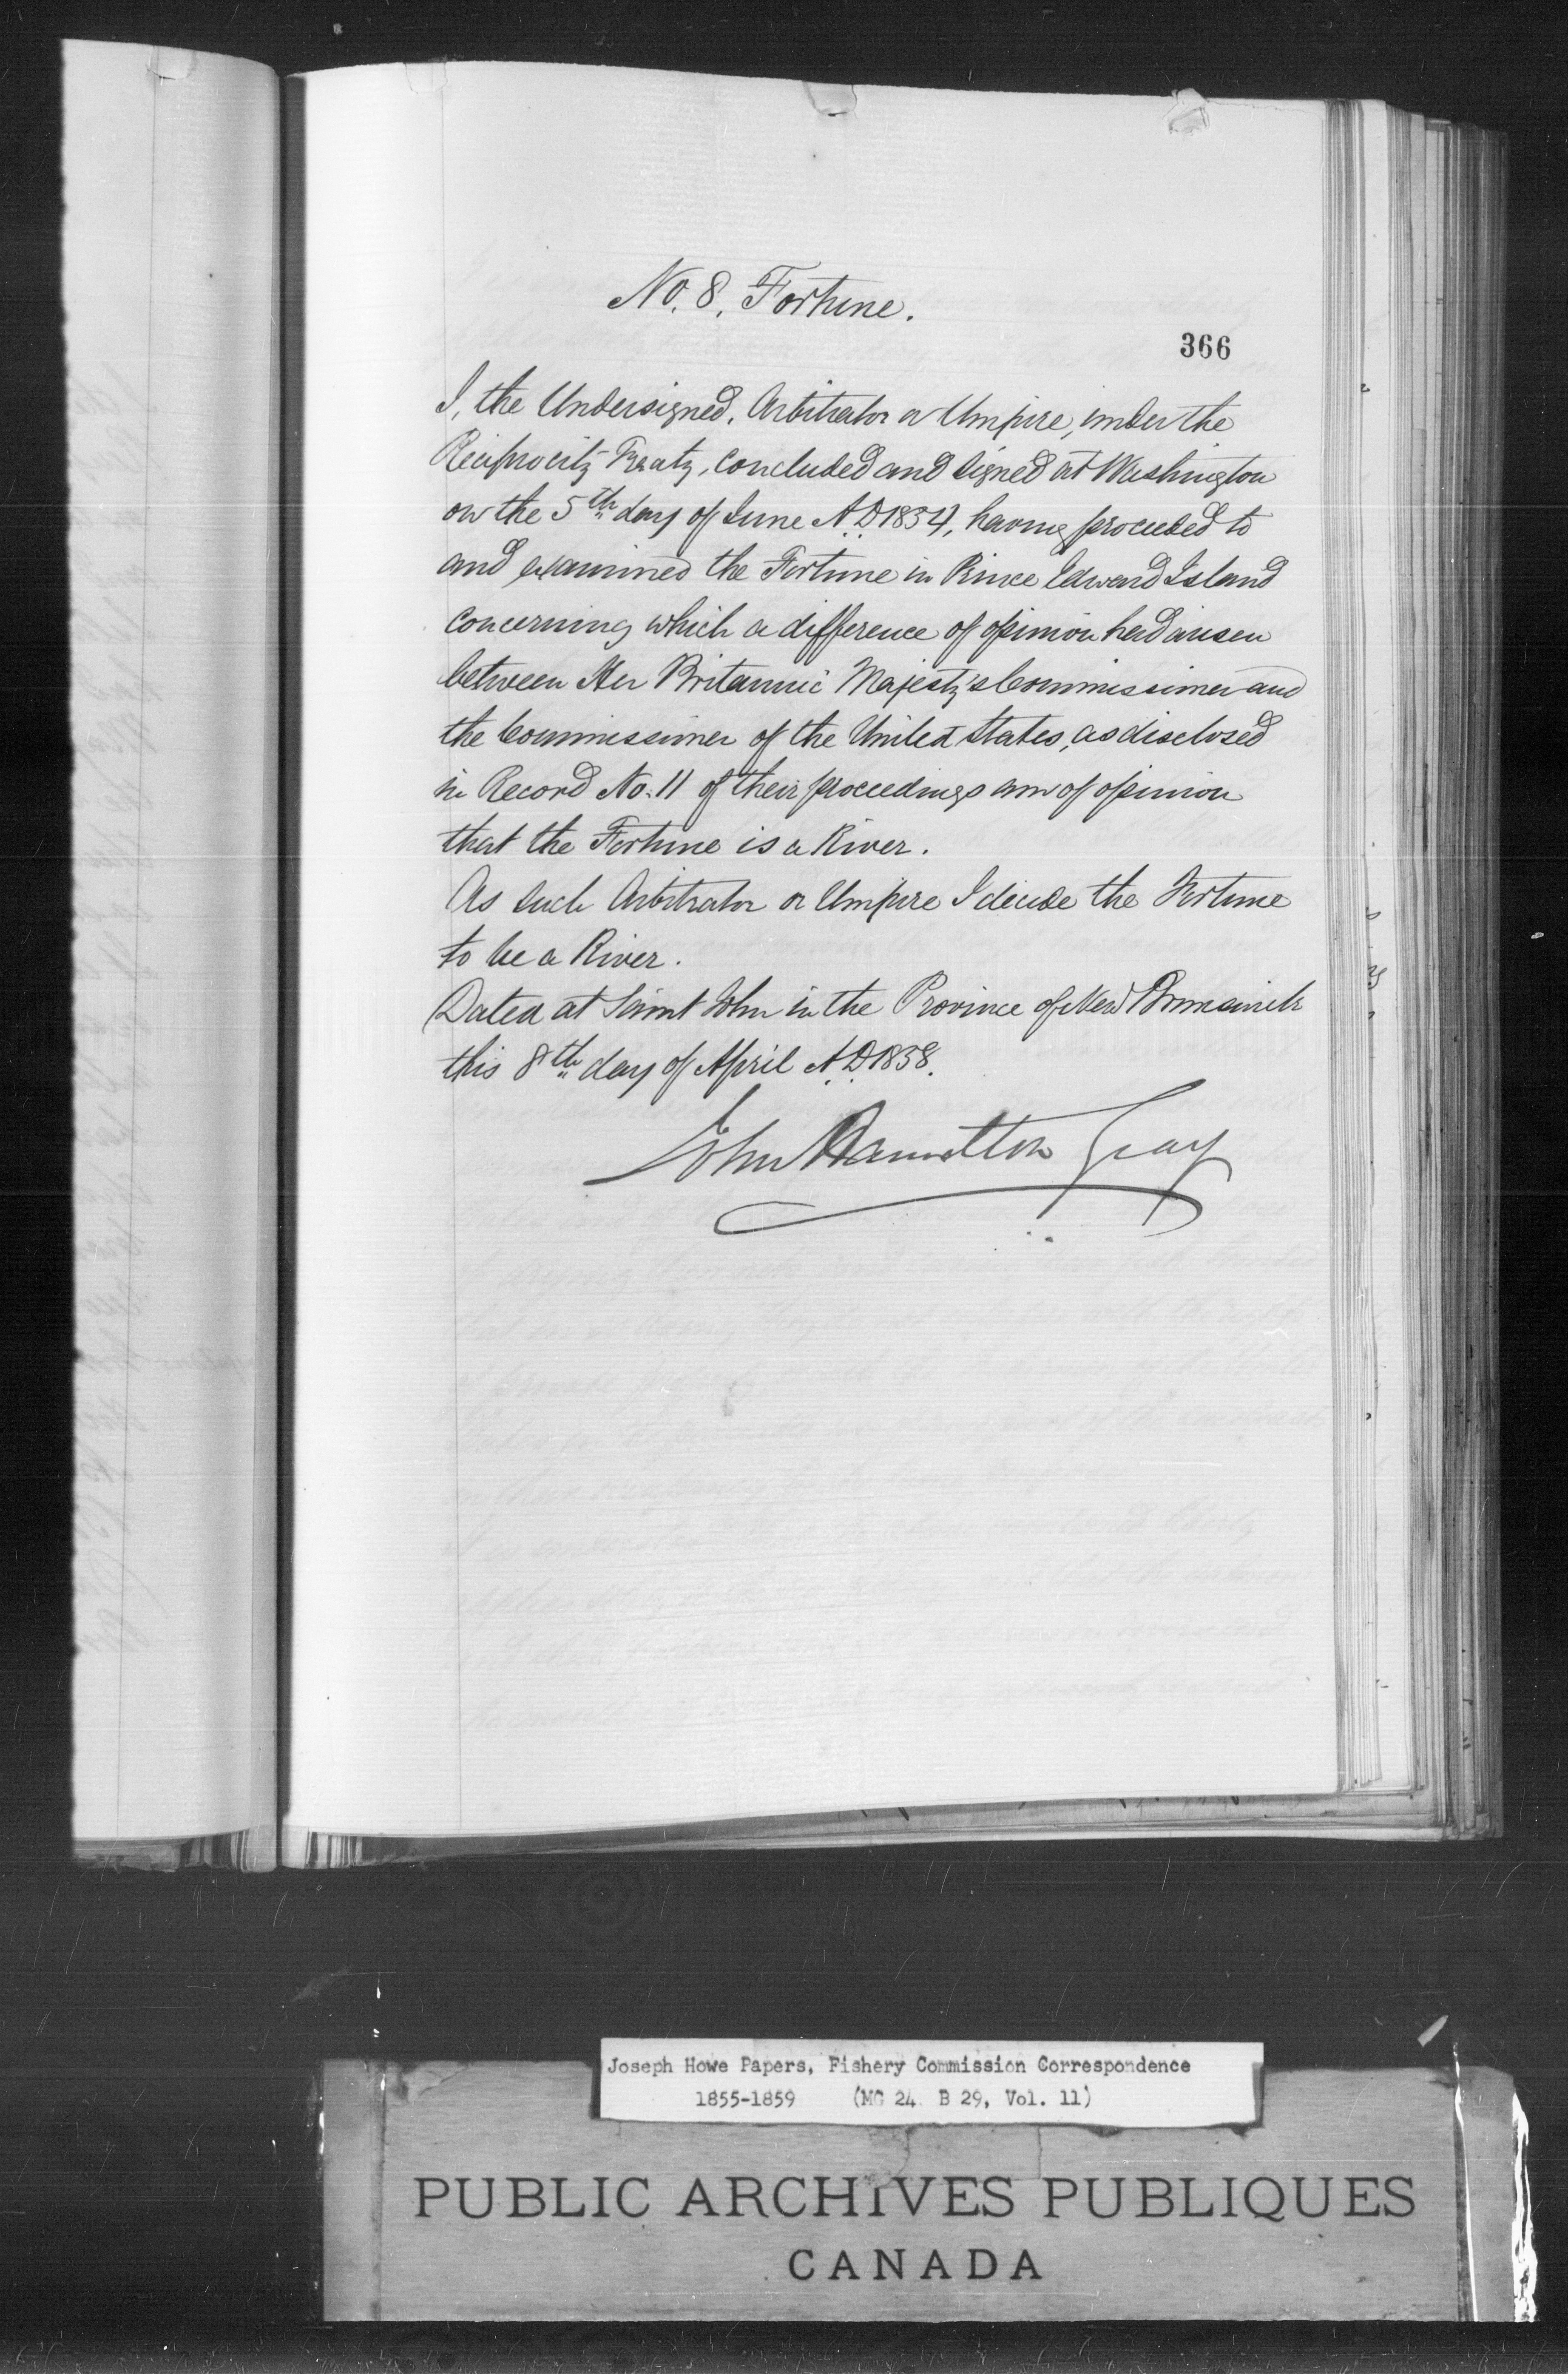 No. 8. Fortune.
366
I, the Undersigned, Arbitrator or Umpire, under the
Reciprocity Treaty, concluded and signed at Washington
on the 5th day of June A.D. 1854, having proceeded to
and examined the Fortune in Prince Edward Island
concerning which a difference of opinion had arisen
between Her Britannic Majesty's Commissioner and
the Commissioner of the United States, as disclosed
in Record No. 11 of their proceedings am of opinion
that the Fortune is a River.
As such Arbitrator or Umpire I decide the Fortune
to be a River.
Dated at Saint John in the Province of New Brunswick
this 8th day of April A.D. 1858.
John Hamilton Gray
Joseph Howe Papers, Fishery Commission Correspondence
1855-1859 (MG 24 B 29, Vol. 11)
PUBLIC ARCHIVES PUBLIQUES
CANADA